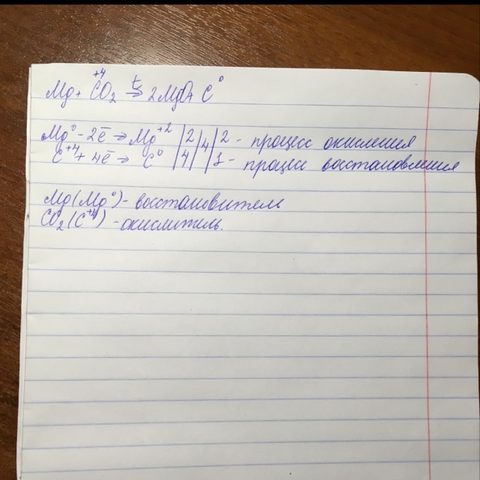 Mg + C⁺⁴O₂ →ᵗ 2MgO + C⁰
Mg⁰ - 2ē → Mg⁺² | 2 | 4 | 2 - процесс окисления
C⁺⁴ + 4ē → C⁰ | 4 | | 1 - процесс восстановления
Mg (Mg⁰) - восстановитель
CO₂ (C⁺⁴) - окислитель.